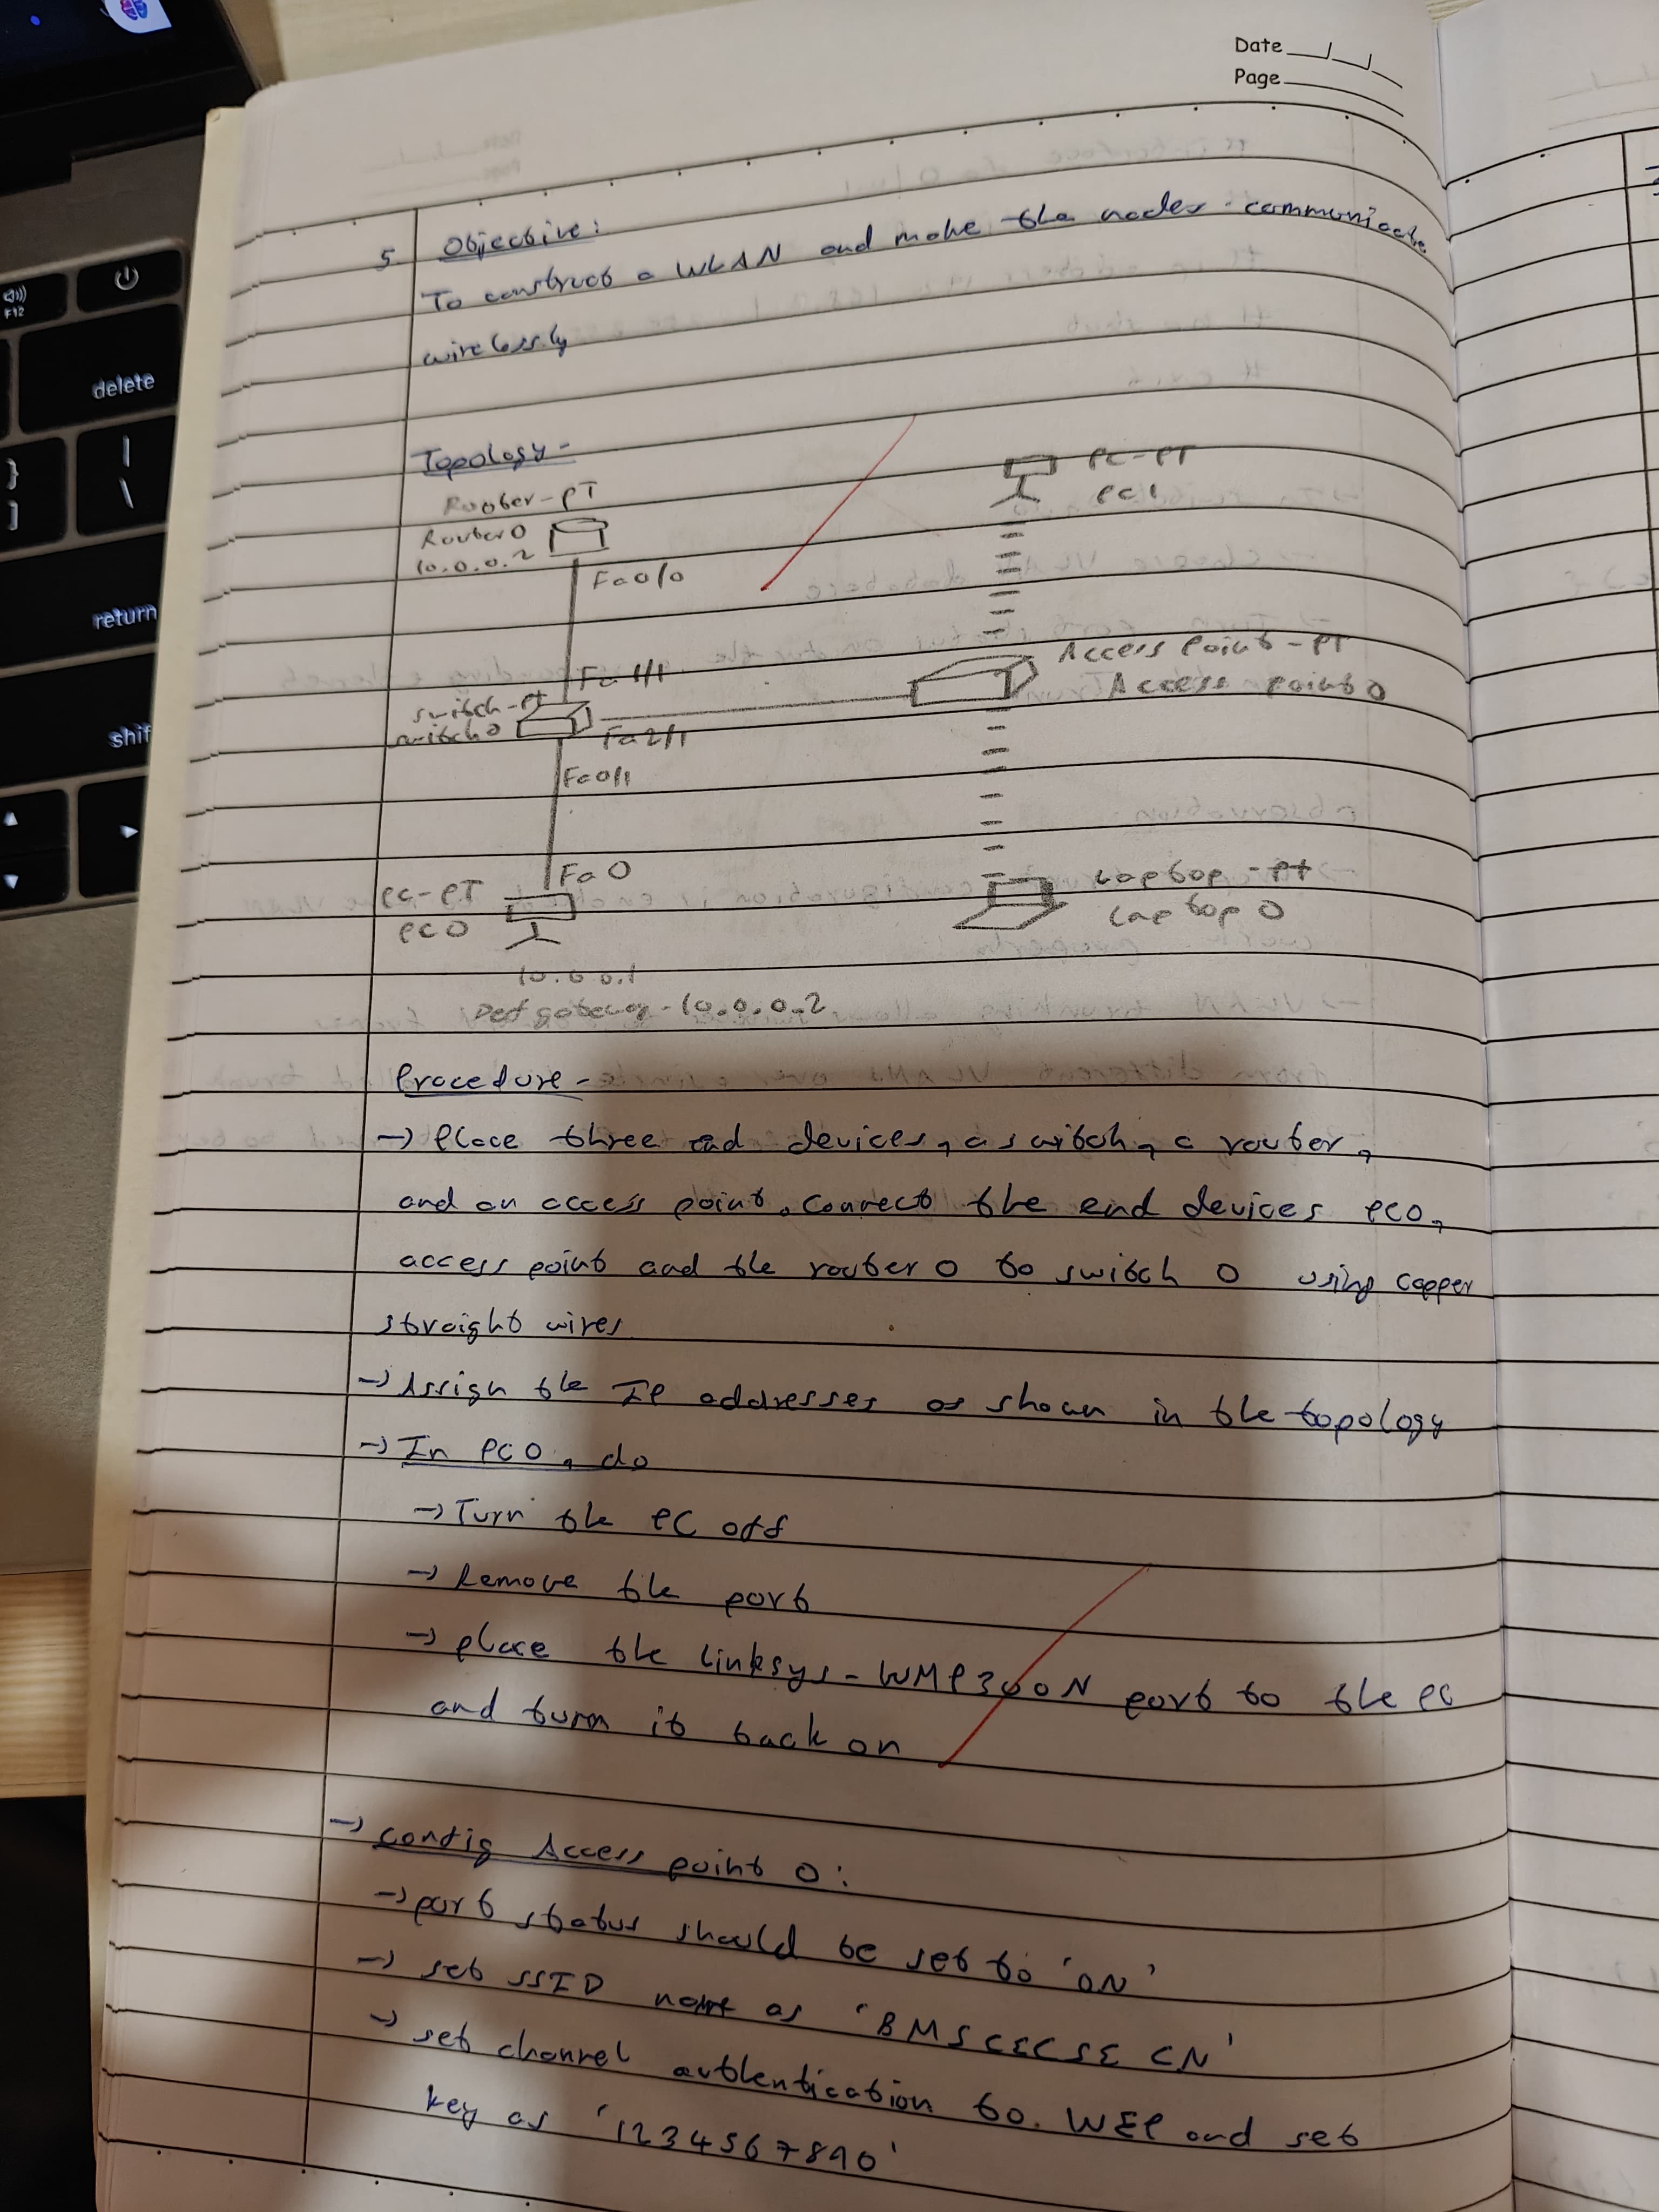 Date
Page
5. Objective:
To construct a WLAN and make the nodes communicate
wirelessly
Topology -
Router-PT
Router0
10.0.0.2
Fa0/0
PC-PT
PC1
Fa1/1
Switch-PT
switch0
Fa2/1
Access Point-PT
Access point 0
Fa0/1
Fa0
PC-PT
PC0
Laptop-PT
Laptop 0
10.0.0.1
Def gateway - 10.0.0.2
Procedure -
→ Place three end devices, a switch, a router,
and an access point. Connect the end devices PC0,
access point and the router 0 to switch 0 using copper
straight wires
→ Assign the IP addresses as shown in the topology
→ In PC0, do
→ Turn the PC off
→ Remove the port
→ place the linksys-WMP300N port to the PC
and turn it back on
→ config Access point 0:
→ port status should be set to 'ON'
→ set SSID name as 'BMSCECSE CN'
→ set channel authentication to. WEP and set
key as '1234567890'
F12
delete
}
]
|
\
return
shif